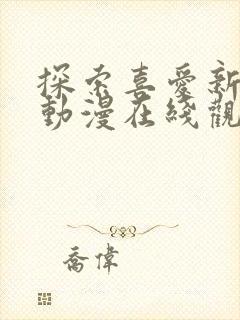 探索喜愛新
動漫在綫觀
喬偉